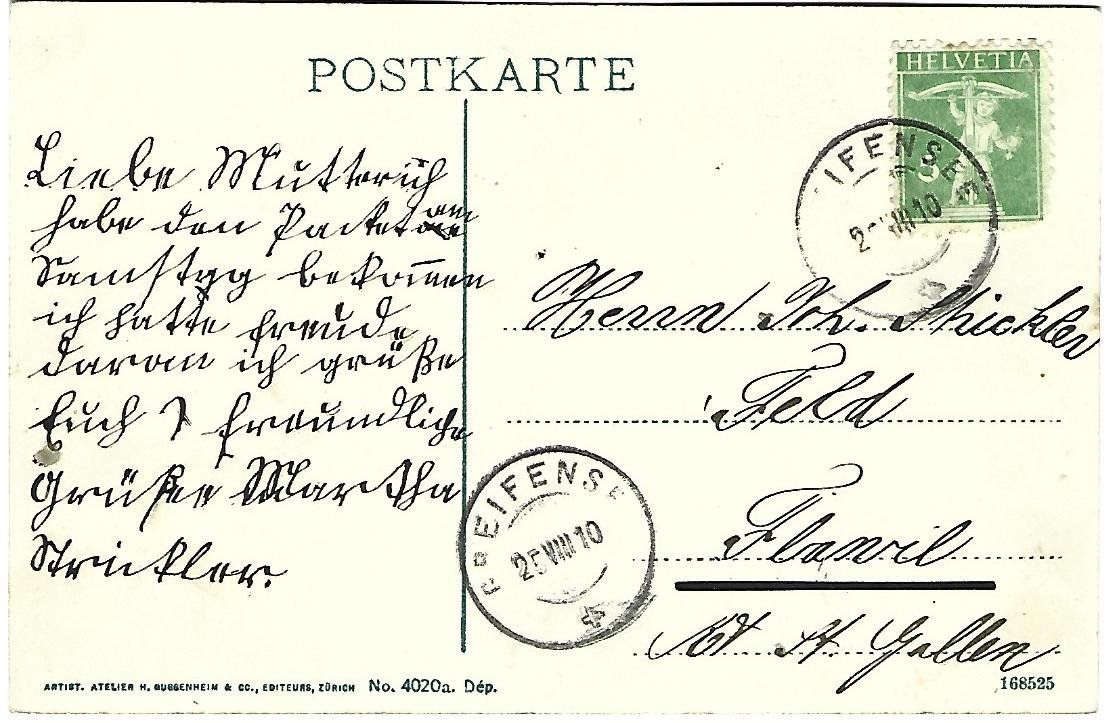 POSTKARTE
HELVETIA
5
IFENSEE
2 VIII 10
Liebe Mutter ich
habe den Packet am
Samstag bekommen
ich hatte Freude
daran ich grüße
Euch freundliche
Grüße Martha
Strickler.
Herrn Joh. Strickler
Feld
Flawil
Kt St Gallen
REIFENSE
25 VIII 10
ARTIST. ATELIER H. GUGGENHEIM & CO., EDITEURS, ZÜRICH No. 4020a. Dép.
168525